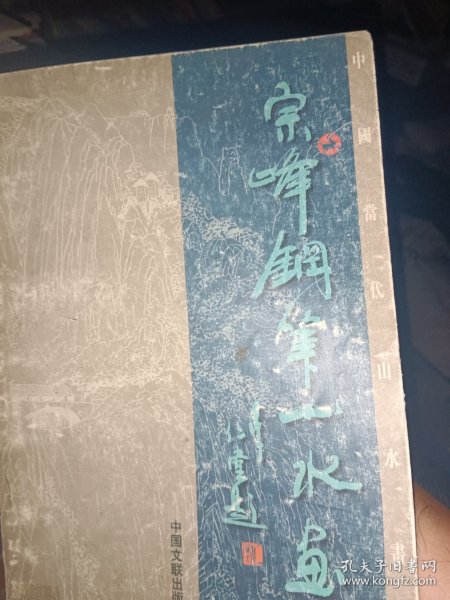 中國當代山水畫
宗峰鋼筆山水画
仁堂题
中国文联出版
孔夫子旧书网
www.kongfz.com